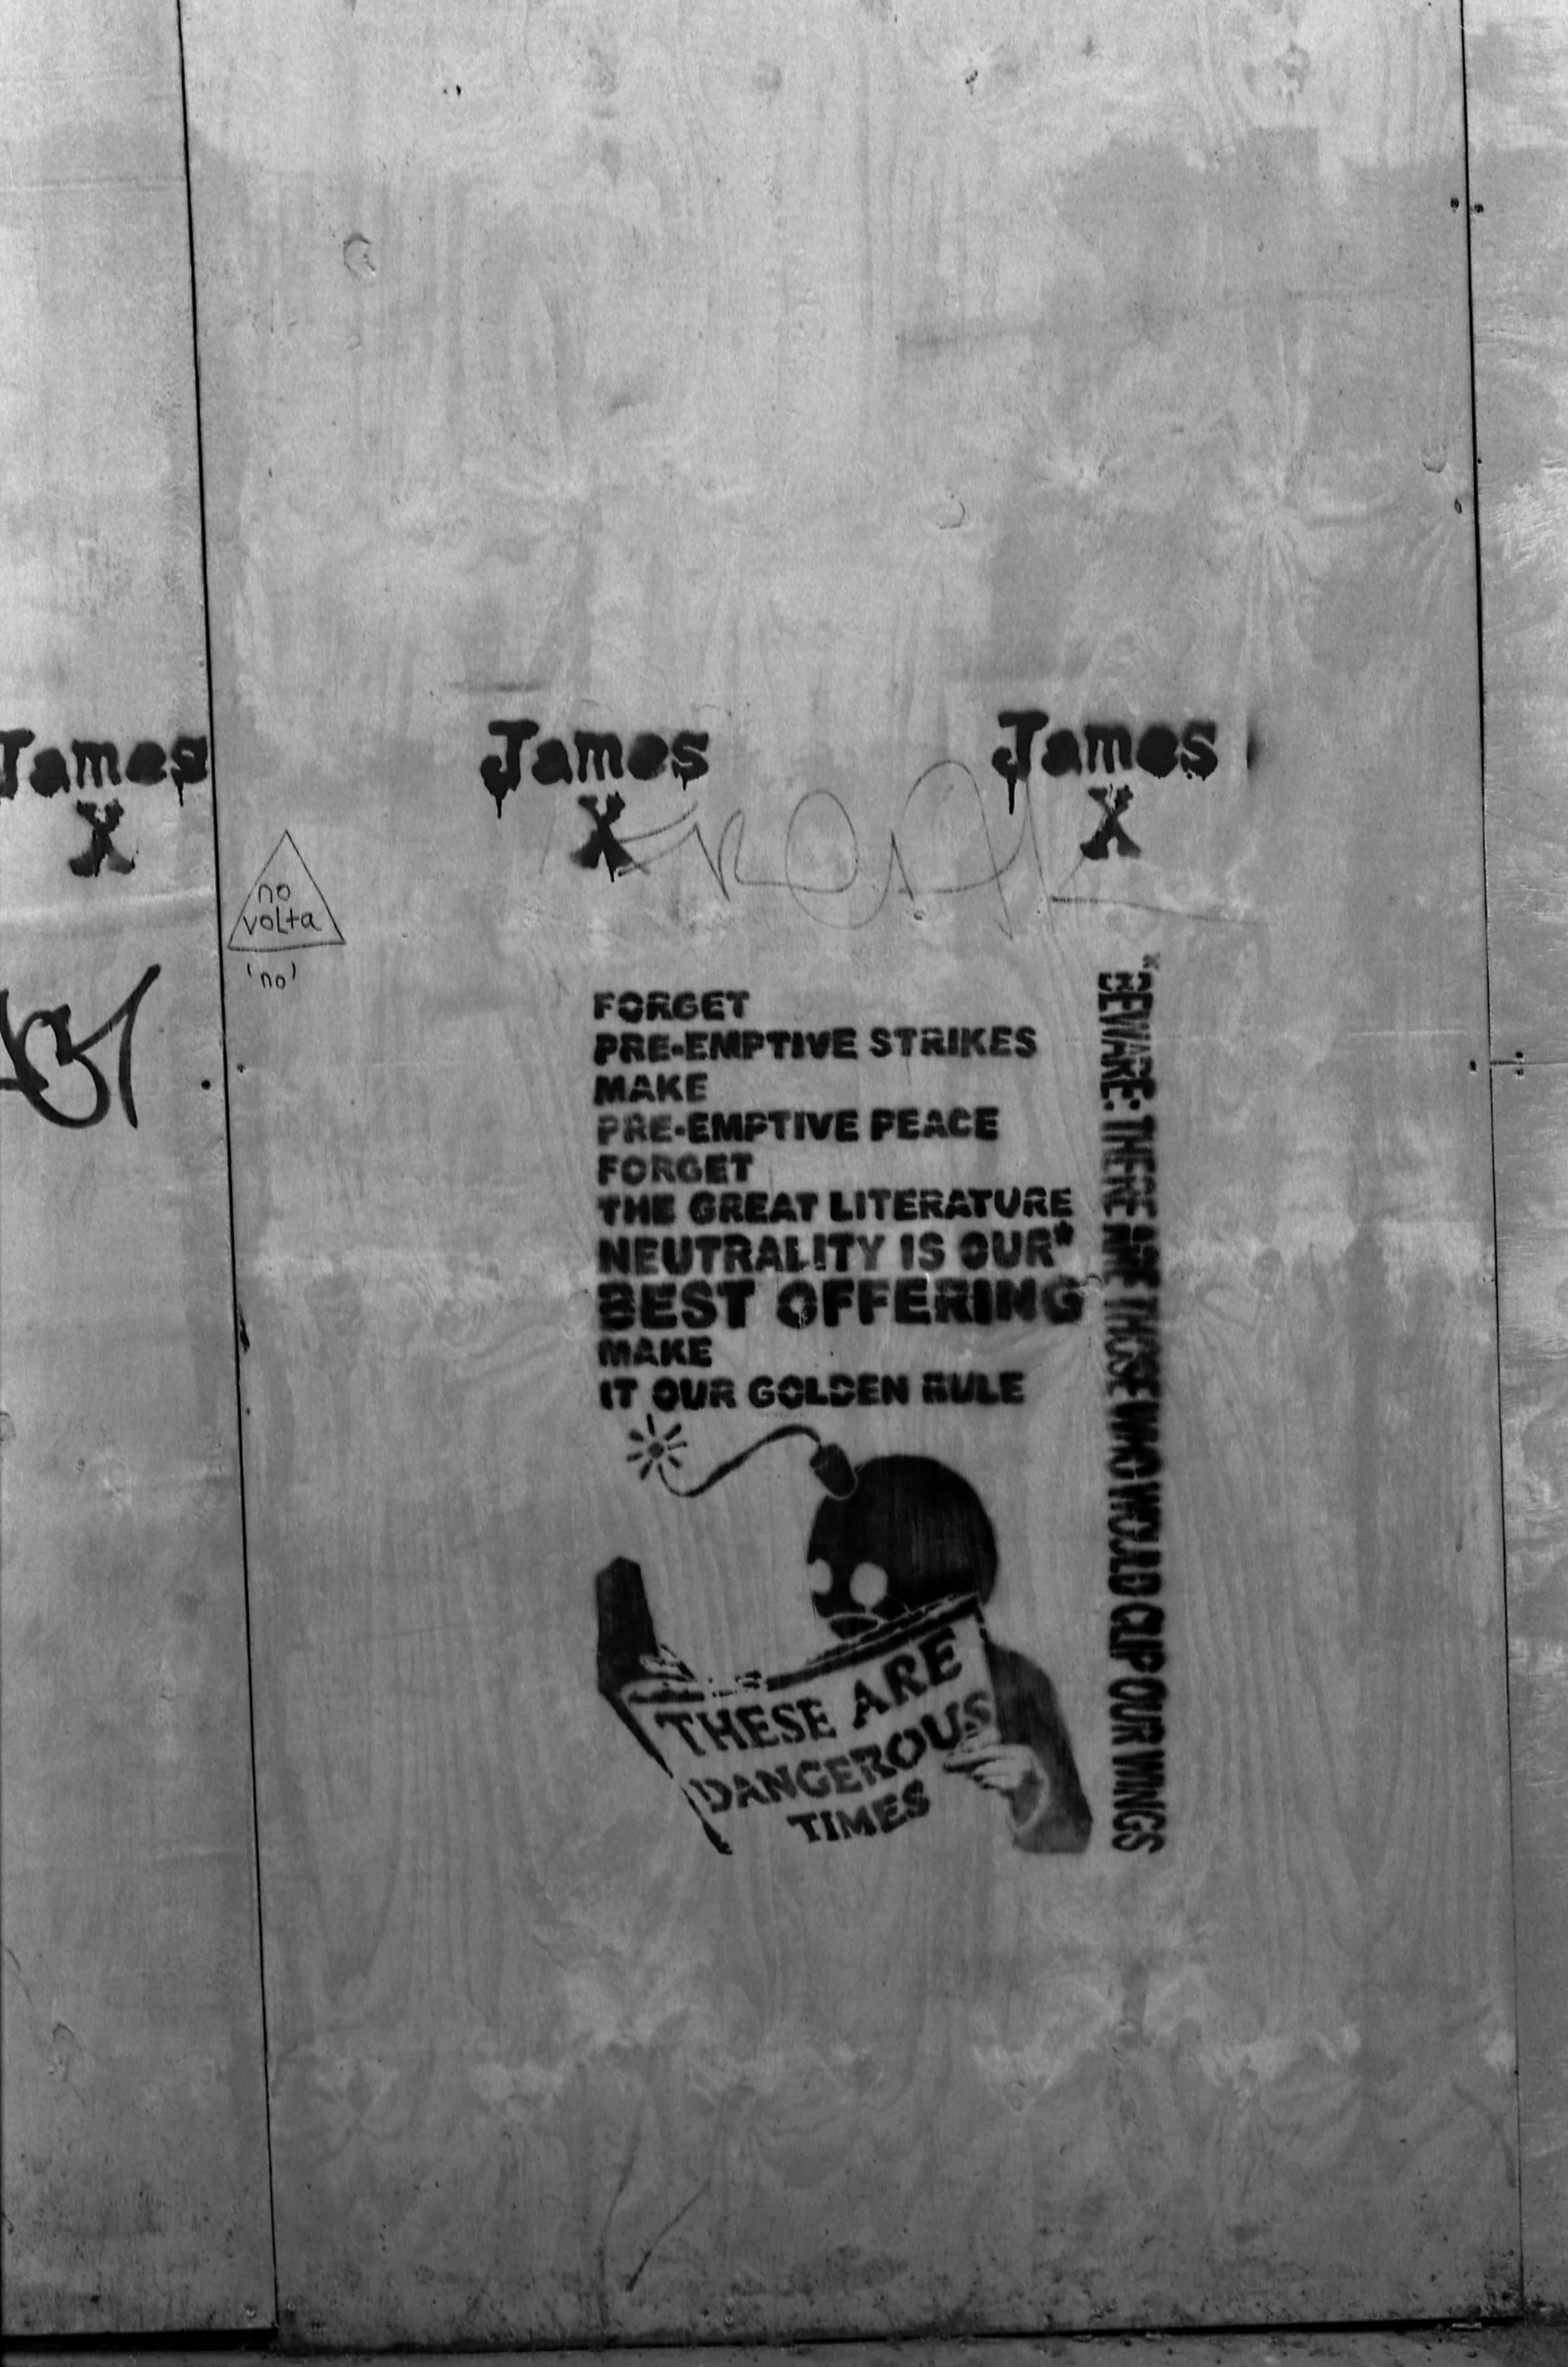 James
X
James
X
James
X
no
volta
'no'
FORGET
PRE-EMPTIVE STRIKES
MAKE
PRE-EMPTIVE PEACE
FORGET
THE GREAT LITERATURE
NEUTRALITY IS OUR*
BEST OFFERING
MAKE
IT OUR GOLDEN RULE
*BEWARE: THERE ARE THOSE WHO WOULD CLIP OUR WINGS
THESE ARE
DANGEROUS
TIMES